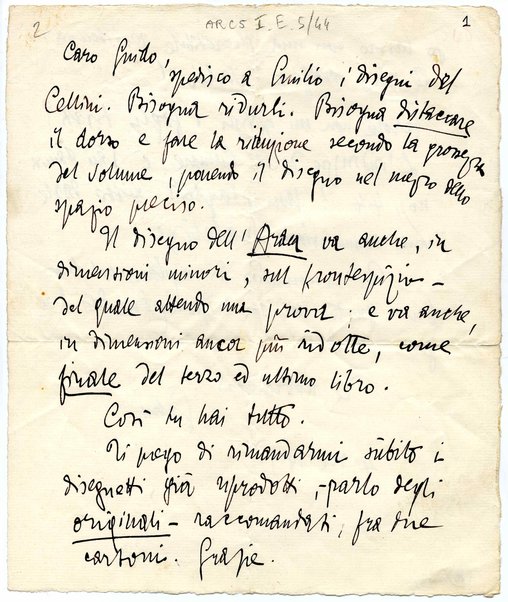 2
ARCS I. E. 5/44
1
Caro Guido,
spedisco a Emilio i disegni del
Cellini. Bisogna ridurli. Bisogna distaccare
il dorso e fare la riduzione secondo la grossezza
del volume, ponendo il disegno nel mezzo dello
spazio preciso.
Il disegno dell'Araa va anche, in
dimensioni minori, sul frontespizio –
del quale attendo una prova; e va anche,
in dimensioni ancor più ridotte, come
finale del terzo ed ultimo libro.
Così tu hai tutto.
Ti prego di rimandarmi subito i
disegnetti già riprodotti, – parlo degli
originali – raccomandati, fra due
cartoni. Grazie.